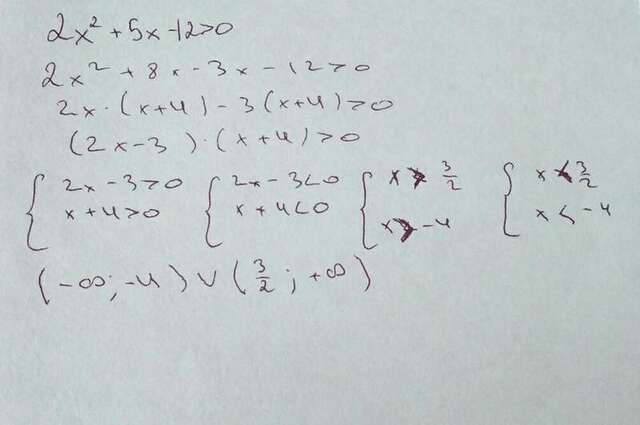 2x² + 5x - 12 > 0
2x² + 8x - 3x - 12 > 0
2x · (x + 4) - 3(x + 4) > 0
(2x - 3) · (x + 4) > 0
{ 2x - 3 > 0 { 2x - 3 < 0 { x > 3/2 { x < 3/2
x + 4 > 0 x + 4 < 0 x > -4 x < -4
(-∞; -4) ∪ (3/2; +∞)